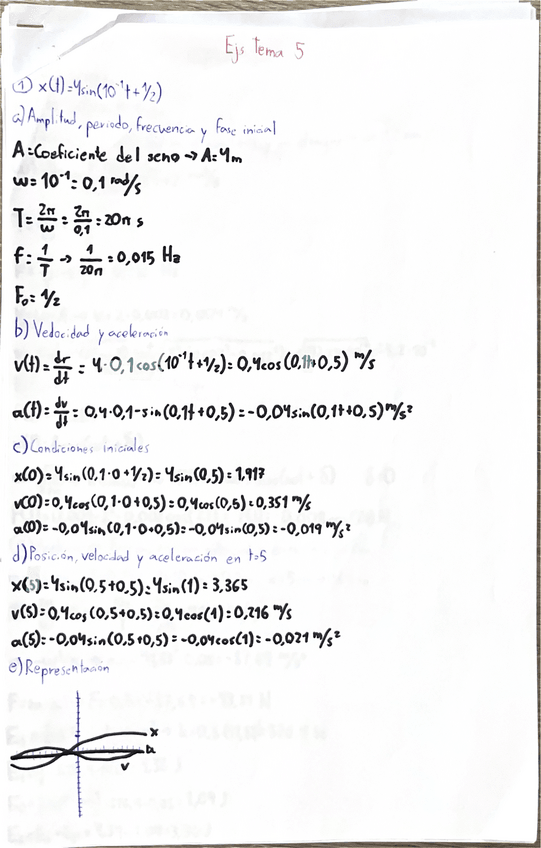 Ejs tema 5
① x(t)=4sin(10⁻¹t+1/2)
a) Amplitud, periodo, frecuencia y fase inicial
A=Coeficiente del seno → A=4m
ω=10⁻¹=0,1 rad/s
T=2π/ω=2π/0,1=20π s
f=1/T → 1/20π=0,015 Hz
F₀=1/2
b) Velocidad y aceleración
v(t)=dr/dt=4·0,1cos(10⁻¹t+1/2)=0,4cos(0,1t+0,5) m/s
a(t)=dv/dt=0,4·0,1-sin(0,1t+0,5)=-0,04sin(0,1t+0,5) m/s²
c) Condiciones iniciales
x(0)=4sin(0,1·0+1/2)=4sin(0,5)=1,917
v(0)=0,4cos(0,1·0+0,5)=0,4cos(0,5)=0,351 m/s
a(0)=-0,04sin(0,1·0+0,5)=-0,04sin(0,5)=-0,019 m/s²
d) Posición, velocidad y aceleración en t=5
x(5)=4sin(0,5+0,5)=4sin(1)=3,365
v(5)=0,4cos(0,5+0,5)=0,4cos(1)=0,216 m/s
a(5)=-0,04sin(0,5+0,5)=-0,04cos(1)=-0,021 m/s²
e) Representación
x
a
v